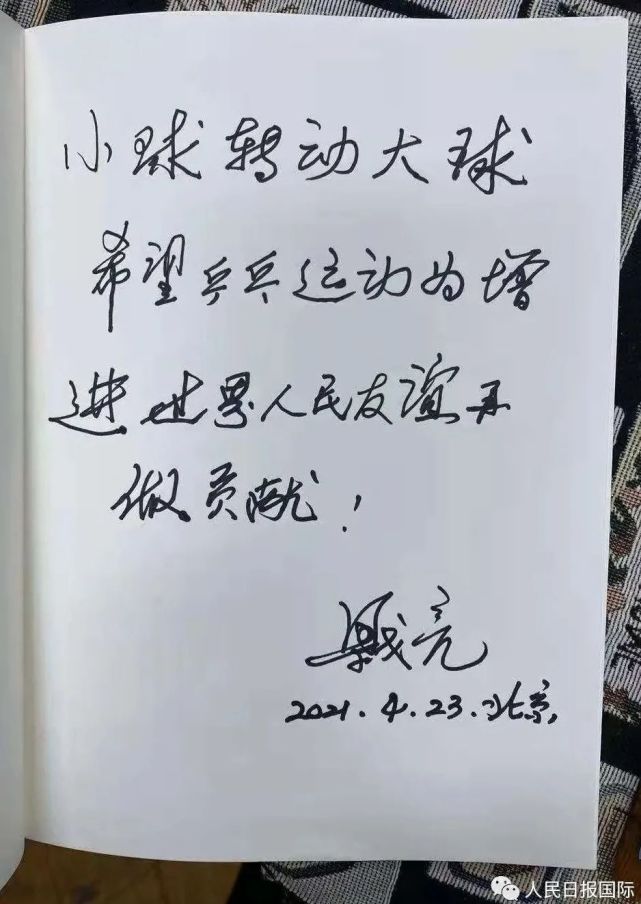 小球转动大球
希望乒乓运动为增
进世界人民友谊再
做贡献！
梁戈亮
2021.4.23.北京
人民日报国际